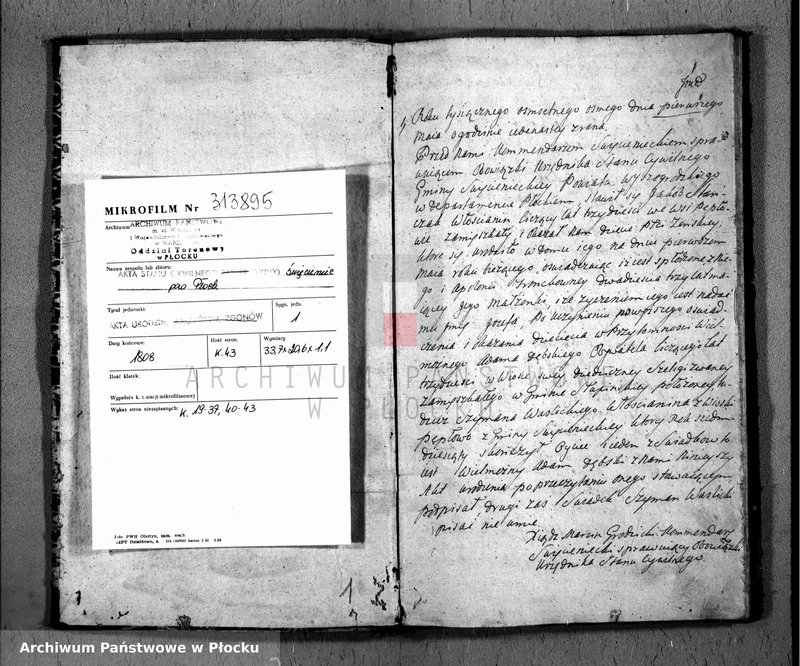 MIKROFILM Nr 313895
Archiwum ARCHIWUM PAŃSTWOWE
m. st. Warszawy
i Województwa
w WARSZ
Oddział Terenowy
w PŁOCKU
Nazwa zespołu lub zbioru:
AKTA STANU CYWILNEGO Święcienic
pao Płock
Tytuł jednostki:
AKTA URODZIN, ZGONÓW
Sygn. jedn.
1
Daty końcowe:
1808
Ilość stron:
K.43
Wymiary
33,7x20,6x1,1
Ilość klatek:
Wypełnia k. t. stacji mikrofilmowej
Wykaz stron niezapisanych: K. 19-39, 40-43
1
Roku tysiącznego osmsetnego osmego dnia pierwszego
Maia o godzinie iedenastey zrana.
Przed Nami Kommendarzem Święcieneckiem spra-
wuiącem Obowiązki Urzędnika Stanu Cywilnego
Gminy Święcieneckiey Powiatu Wyszogrodzkiego
w departamencie Płockiem, stawił się Jakob Stan-
czak Włościanin liczący lat trzydzieści we Wsi Pepło-
wie Zamyszkały i okazał Nam dziecie płci Zenskiey,
które się urodziło w domu iego na dniu pierwszem
Maia roku bieżącego, oswiadczaiąc iż iest spłodzone z Nie-
go i Apolonii dwadziescia trzy lat ma-
iącey Jego Małżonki, i że życzeniem iego iest nadać
mu Imię Jozefa, Po uczynieniu powyższego oswiad-
czenia i okazania dziecięcia w Przytomności Wiel-
możnego Adama Dębskiego liczącego lat
trzydzieści w Wiosce swey dziedziczney
Zamyszkałego w Gminie położoney tu-
dzież Szymana Waslickiego Włościanina z Wioski
Pepłowo z Gminy Święcieneckiey który Rok siedm-
dziesiąty Oyciec i ieden z Swiadkow to
iest Wielmożny Adam Dębski z Nami Niniey szy
Akt urodzenia po przeczytaniu onego stawaiącym,
podpisał, drugi zaś Swiadek Szyman Waslicki
pisac nie umie.
Xiądz Marcin Grodzicki Kommendarz
Święcienecki sprawuiący Obowiązki
Urzędnika Stanu Cywilnego.
1
ARCHIWUM PAŃSTWOWE
W PŁOCKU
Archiwum Państwowe w Płocku